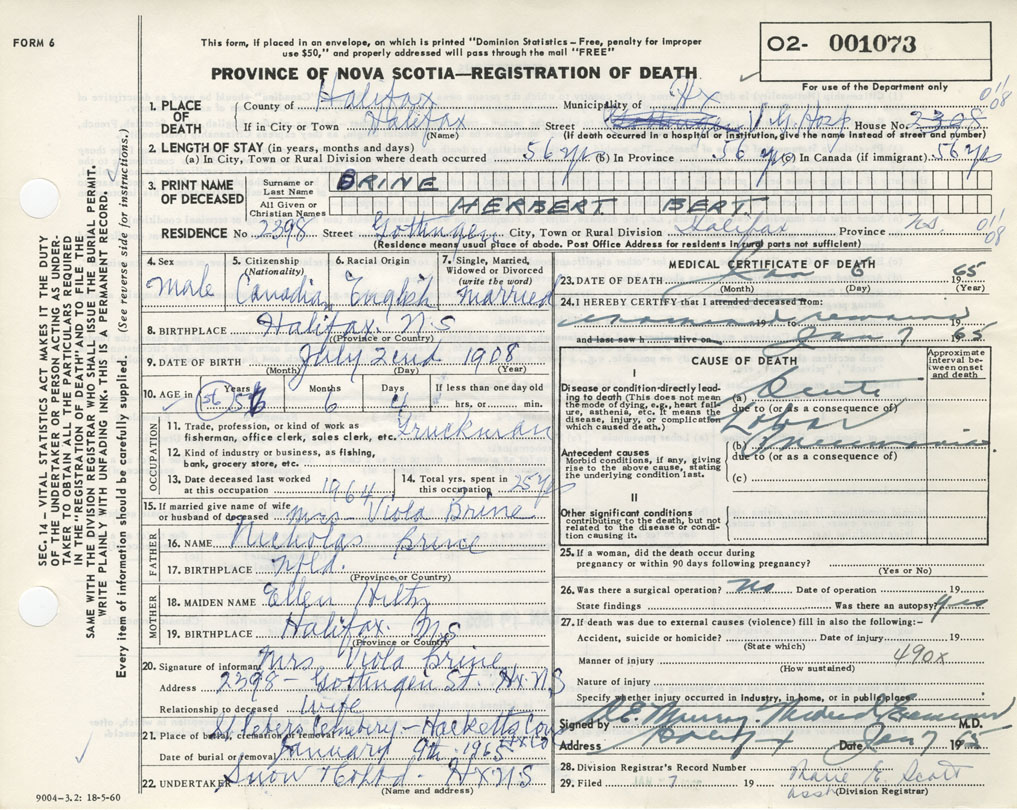 FORM 6
This form, if placed in an envelope, on which is printed "Dominion Statistics – Free, penalty for improper
use $50," and properly addressed will pass through the mail "FREE"
PROVINCE OF NOVA SCOTIA—REGISTRATION OF DEATH
O2- 001073
For use of the Department only
SEC. 14 – VITAL STATISTICS ACT MAKES IT THE DUTY
OF THE UNDERTAKER OR PERSON ACTING AS UNDER-
TAKER TO OBTAIN ALL THE PARTICULARS REQUIRED
IN THE "REGISTRATION OF DEATH" AND TO FILE THE
SAME WITH THE DIVISION REGISTRAR WHO SHALL ISSUE THE BURIAL PERMIT.
WRITE PLAINLY WITH UNFADING INK. THIS IS A PERMANENT RECORD.
Every item of information should be carefully supplied. (See reverse side for instructions.)
1. PLACE OF DEATH County of Halifax Municipality of Hx
If in City or Town Halifax Street V.G. Hosp House No. 2398
(Name) (If death occurred in a hospital or institution, give the name instead of street and number)
2. LENGTH OF STAY (in years, months and days)
(a) In City, Town or Rural Division where death occurred 56 yrs (b) In Province 56 yrs (c) In Canada (if immigrant) 56 yrs
3. PRINT NAME OF DECEASED Surname or Last Name BRINE
All Given or Christian Names HERBERT BERT
RESIDENCE No. 2398 Street Gottingen City, Town or Rural Division Halifax Province N.S.
(Residence means usual place of abode. Post Office Address for residents in rural parts not sufficient)
4. Sex Male
5. Citizenship (Nationality) Canadian
6. Racial Origin English
7. Single, Married, Widowed or Divorced (write the word) Married
8. BIRTHPLACE Halifax. N.S
(Province or Country)
9. DATE OF BIRTH July 2nd 1908
(Month) (Day) (Year)
10. AGE in Years 56 Months 6 Days 4 If less than one day old hrs. or min.
OCCUPATION
11. Trade, profession, or kind of work as
fisherman, office clerk, sales clerk, etc. Truckman
12. Kind of industry or business, as fishing,
bank, grocery store, etc.
13. Date deceased last worked at this occupation 1964
14. Total yrs. spent in this occupation 25 yrs
15. If married give name of wife or husband of deceased Mrs Viola Brine
FATHER
16. NAME Nicholas Brine
17. BIRTHPLACE Nfld.
(Province or Country)
MOTHER
18. MAIDEN NAME Ellen Hiltz
19. BIRTHPLACE Halifax. N.S
(Province or Country)
20. Signature of informant Mrs Viola Brine
Address 2398 – Gottingen St. Hx. N.S
Relationship to deceased Wife
21. Place of burial, cremation or removal St Peters Cemetery – Hacketts Cove Hx Co
Date of burial or removal January 9th. 1965
22. UNDERTAKER Snow & Co Ltd. Hx N.S
(Name and address)
9004–3.2: 18-5-60
MEDICAL CERTIFICATE OF DEATH
23. DATE OF DEATH Jan 6 1965
(Month) (Day) (Year)
24. I HEREBY CERTIFY that I attended deceased from:
examined remains 19 to 19
and last saw h alive on Jan 7 1965
CAUSE OF DEATH
Approximate interval between onset and death
I
Disease or condition directly leading to death (This does not mean the mode of dying, e.g., heart failure, asthenia, etc. It means the disease, injury, or complication which caused death.)
(a) Acute
due to (or as a consequence of)
Lobar
(b) Pneumonia
due to (or as a consequence of)
Antecedent causes
Morbid conditions, if any, giving rise to the above cause, stating the underlying condition last.
(c)
II
Other significant conditions
contributing to the death, but not related to the disease or condition causing it.
25. If a woman, did the death occur during
pregnancy or within 90 days following pregnancy?
(Yes or No)
26. Was there a surgical operation? No Date of operation 19
State findings Was there an autopsy? yes
27. If death was due to external causes (violence) fill in also the following:-
Accident, suicide or homicide? Date of injury 19
(State which)
Manner of injury 490x
(How sustained)
Nature of injury
Specify whether injury occurred in Industry, in home, or in public place
Signed by Murray Medical Examiner M.D.
Address Date Jan 7 1965
28. Division Registrar's Record Number
29. Filed 7 19 Marie E. Scott
asst (Division Registrar)